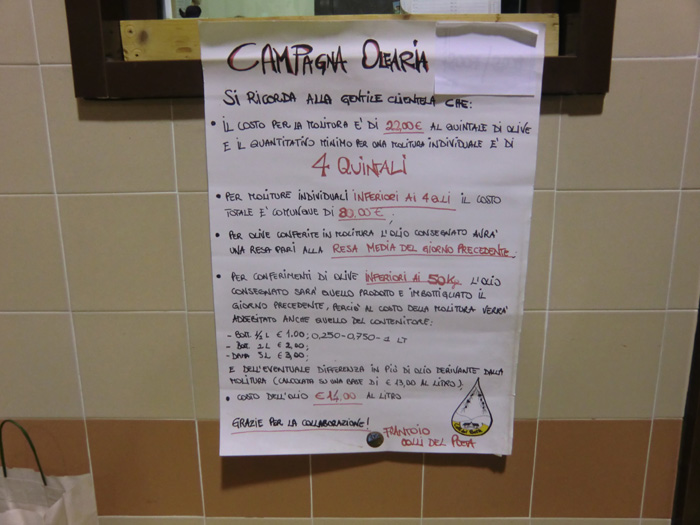 CAMPAGNA OLEARIA
SI RICORDA ALLA GENTILE CLIENTELA CHE:
• IL COSTO PER LA MOLITURA E' DI 22,00€ AL QUINTALE DI OLIVE
E IL QUANTITATIVO MINIMO PER UNA MOLITURA INDIVIDUALE E' DI
4 QUINTALI
• PER MOLITURE INDIVIDUALI INFERIORI AI 4 Q.LI IL COSTO
TOTALE E' COMUNQUE DI 80,00€;
• PER OLIVE CONFERITE IN MOLITURA L'OLIO CONSEGNATO AVRA'
UNA RESA PARI ALLA RESA MEDIA DEL GIORNO PRECEDENTE
• PER CONFERIMENTI DI OLIVE INFERIORI AI 50 Kg. L'OLIO
CONSEGNATO SARA' QUELLO PRODOTTO E IMBOTTIGLIATO IL
GIORNO PRECEDENTE, PERCIO' AL COSTO DELLA MOLITURA VERRA'
ADDEBITATO ANCHE QUELLO DEL CONTENITORE:
- BOTT. ½ L € 1.00; 0,250-0,750-1 LT
- BOT. 2 L € 2,00;
- DAMA 5 L € 3,00;
E DELL'EVENTUALE DIFFERENZA IN PIÙ DI OLIO DERIVANTE DALLA
MOLITURA (CALCOLATA SU UNA BASE DI € 13,00 AL LITRO).
• COSTO DELL'OLIO € 14,00 AL LITRO
GRAZIE PER LA COLLABORAZIONE!
FRANTOIO
COLLI DEL POETA